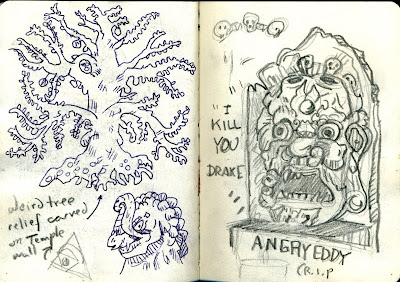 weird tree
relief carved
on Temple
wall
"I
KILL
YOU
DRAKE"
ANGRY EDDY
(R.I.P